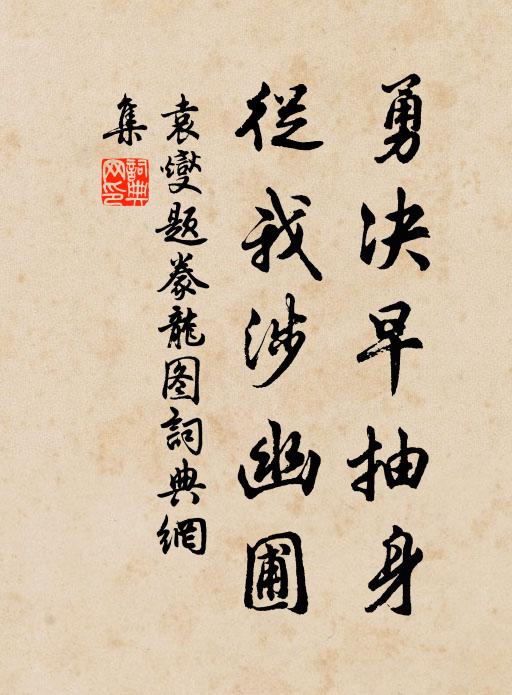 勇決早抽身
從我涉幽圃
袁燮題豢龍图詞典網
集
詞典
网印